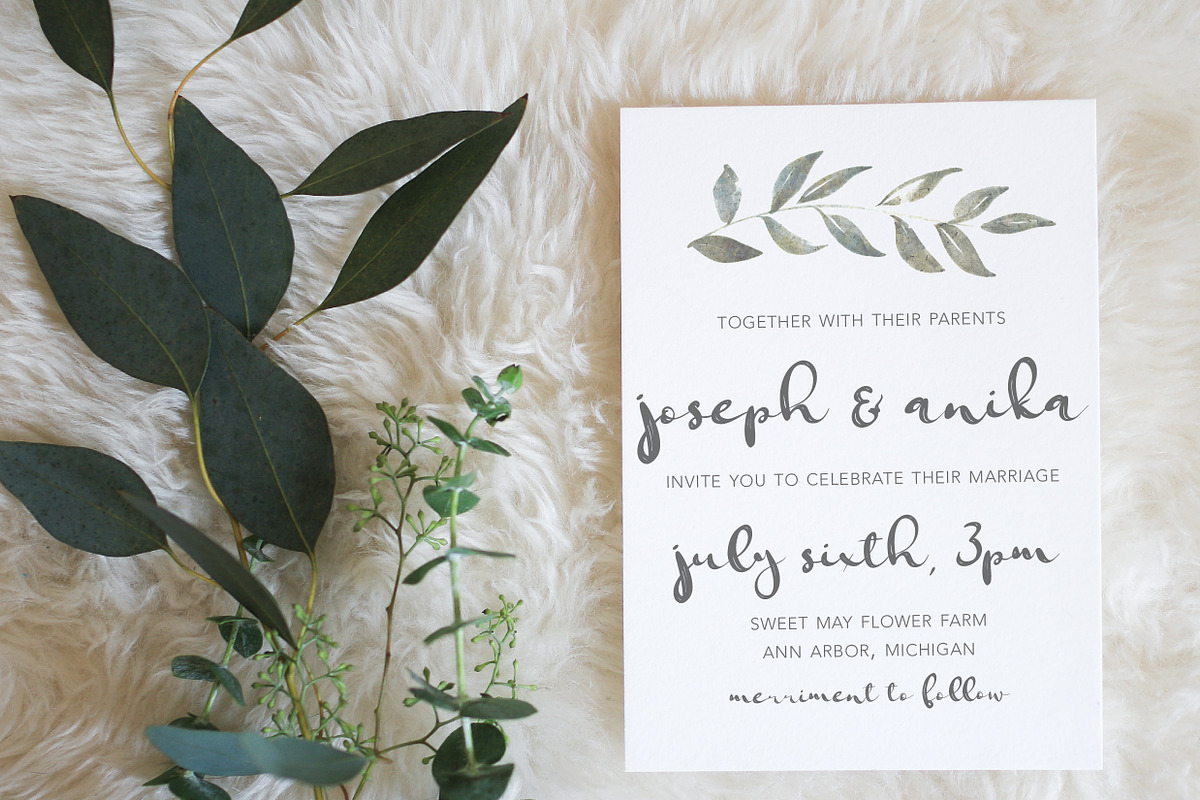 TOGETHER WITH THEIR PARENTS
joseph & anika
INVITE YOU TO CELEBRATE THEIR MARRIAGE
july sixth, 3pm
SWEET MAY FLOWER FARM
ANN ARBOR, MICHIGAN
merriment to follow